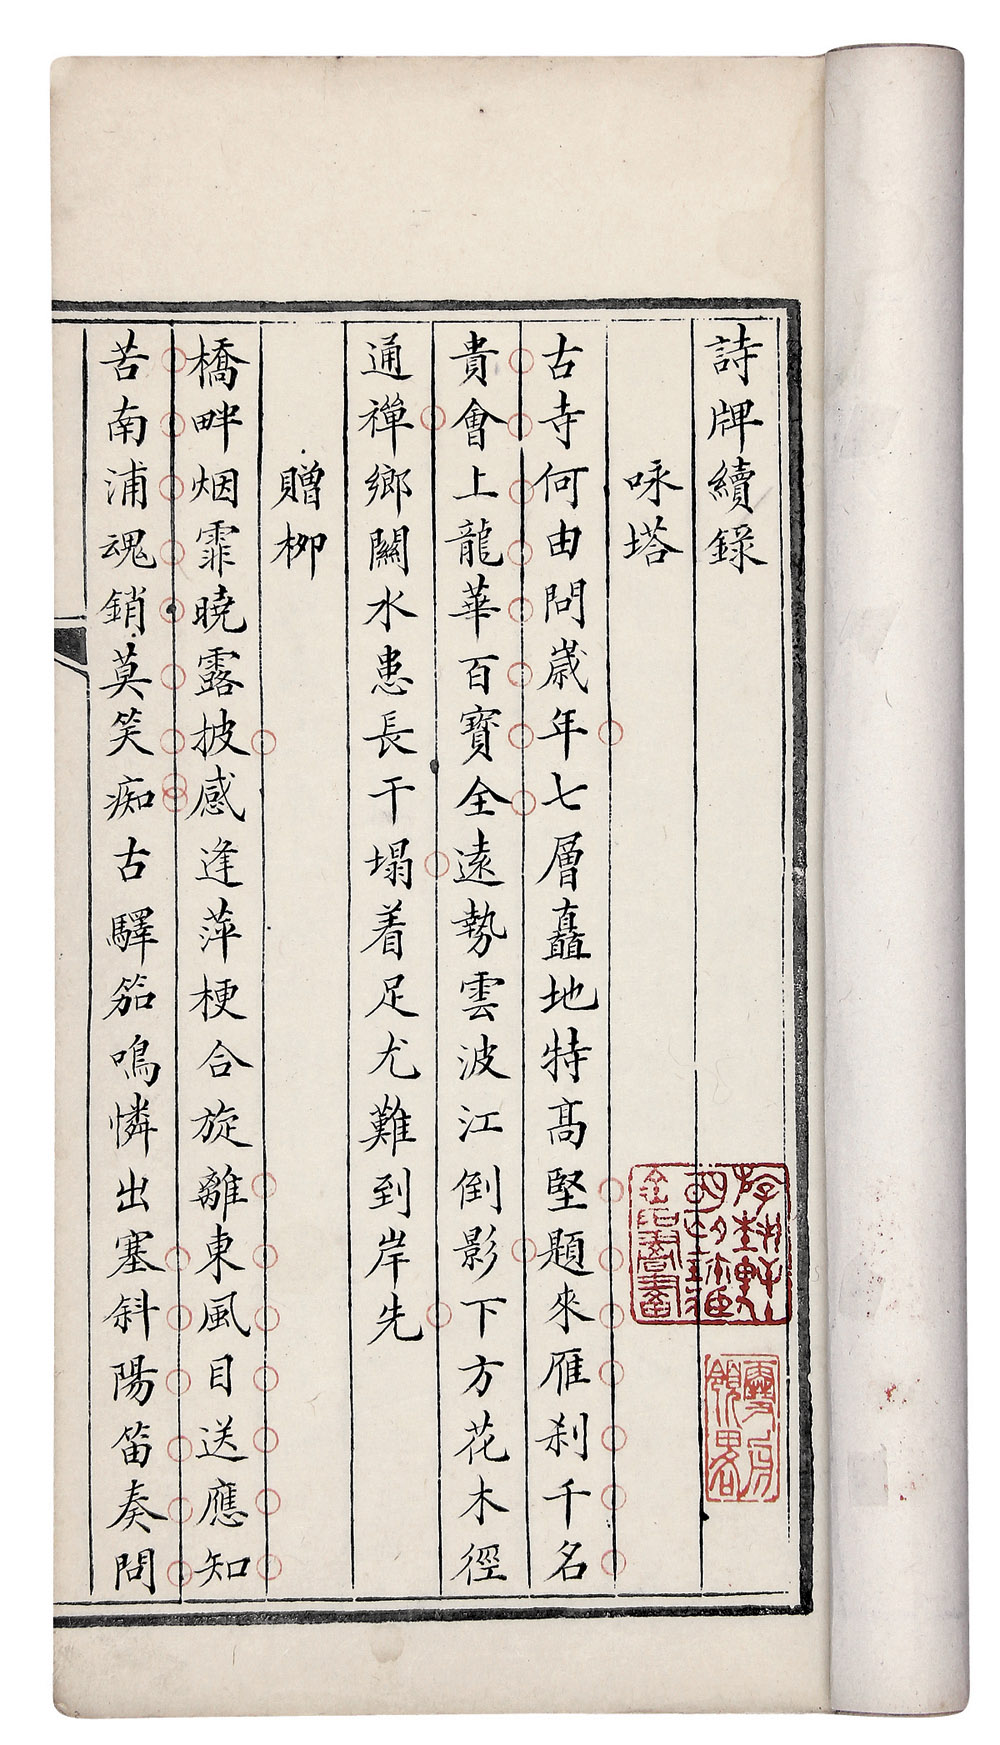 詩牌續錄
咏塔
古寺何由問歲年七層矗地特高堅題來雁刹千名
貴會上龍華百寳全遠勢雲波江倒影下方花木徑
通禅鄉關水患長干塌着足尤難到岸先
贈柳
橋畔烟霏曉露披感逢萍梗合旋離東風目送應知
苦南浦魂銷莫笑痴古驛笳鳴憐出塞斜陽笛奏問